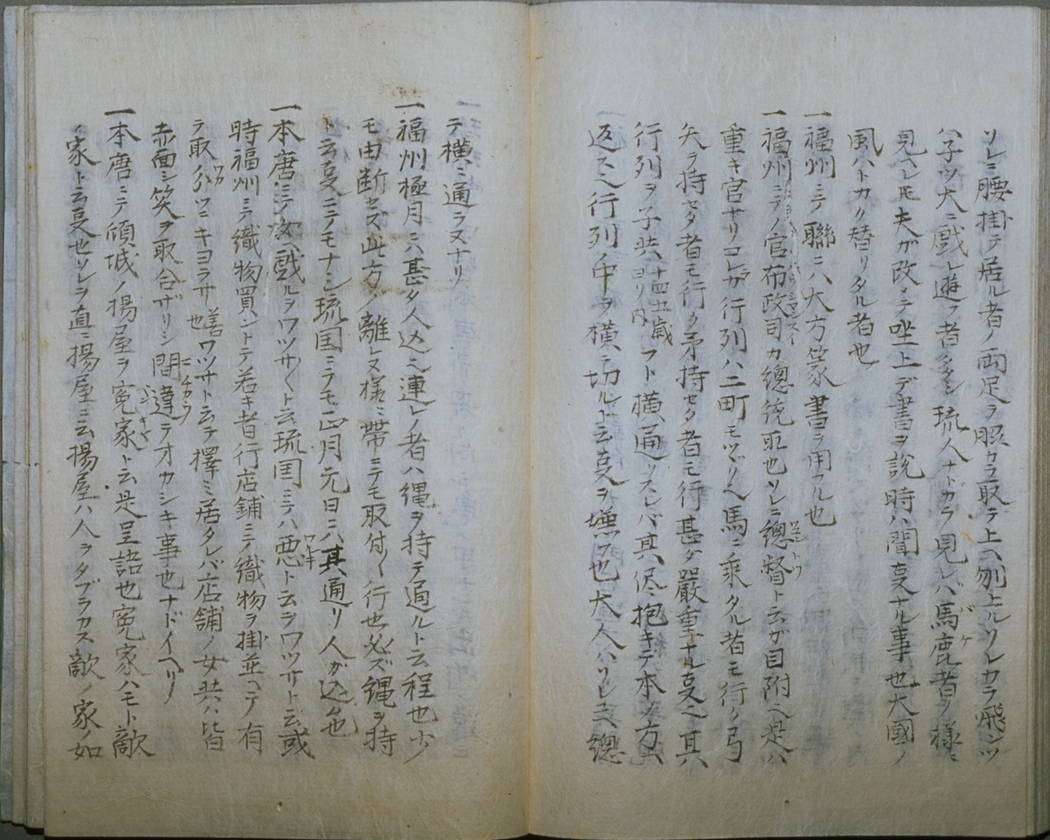 ソレニ腰掛テ居ル者ノ両足ヲ取テ上ヘ刎上ルソレカラ飛ツ
ハ子ツ大ニ戯レ遊フ者多シ琉人ナドカラ見レバ馬鹿者ノ様ニ
見ユレ𪜈夫ガ改テ坐上デ書ヲ説時ハ聞㕝ナル事也大國ノ
風ハトカク替リタル者也
一福州ニテ聯ニハ大方篆書ヲ用フル也
一福州ニテノ官布政司カ總統㽵也ソレニ總督ト云ガ目附ヘ是ハ
重キ官サリコレガ行列ハ二町モツヾク馬ニ乗タル者モ行ク弓
矢ヲ持セタ者モ行ク矛持セタ者モ行甚タ嚴重ナル㕝也其
行列ヲ子共十四五歳ヨリ内フト横通リスレバ其侭抱キテ本ノ方ヘ
返ス也行列ノ中ヲ横ニ切ルト云㕝ヲ嫌フ也大人ハソレ㕝總
テ横ニ通ラヌナリ
一福州極月ニハ甚タ人込也連レノ者ハ縄ヲ持テ通ルト云程也少
モ由断セズ此方ノ離レヌ様ニ帯ニテモ取付ク行也必ズ縄ヲ持
ト云㕝ニテモナシ琉国ニテモ正月元日ニハ其通リ人ガ込也
一本唐ニテ女ニ戯ルヲワツサクト云琉国ニテハ悪ト云ヲワツサト云或
時福州ニテ織物買ントテ若キ者行店鋪ニテ織物ヲ掛並ヘテ有
ヲ取分ツニキヨラサ善也ワツサト云テ擇ミ居タレバ店舗ノ女共ハ皆
赤面シ笑ヲ取合ザリシ間違テオカシキ事也ナドイヘリ
一本唐ニテ傾城ノ揚屋ヲ寃家ト云是呈語也寃家ハモト敵
ノ家ト云㕝也ソレヲ直ニ揚屋ニ云揚屋ハ人ヲタブラカス敵ノ家ノ如